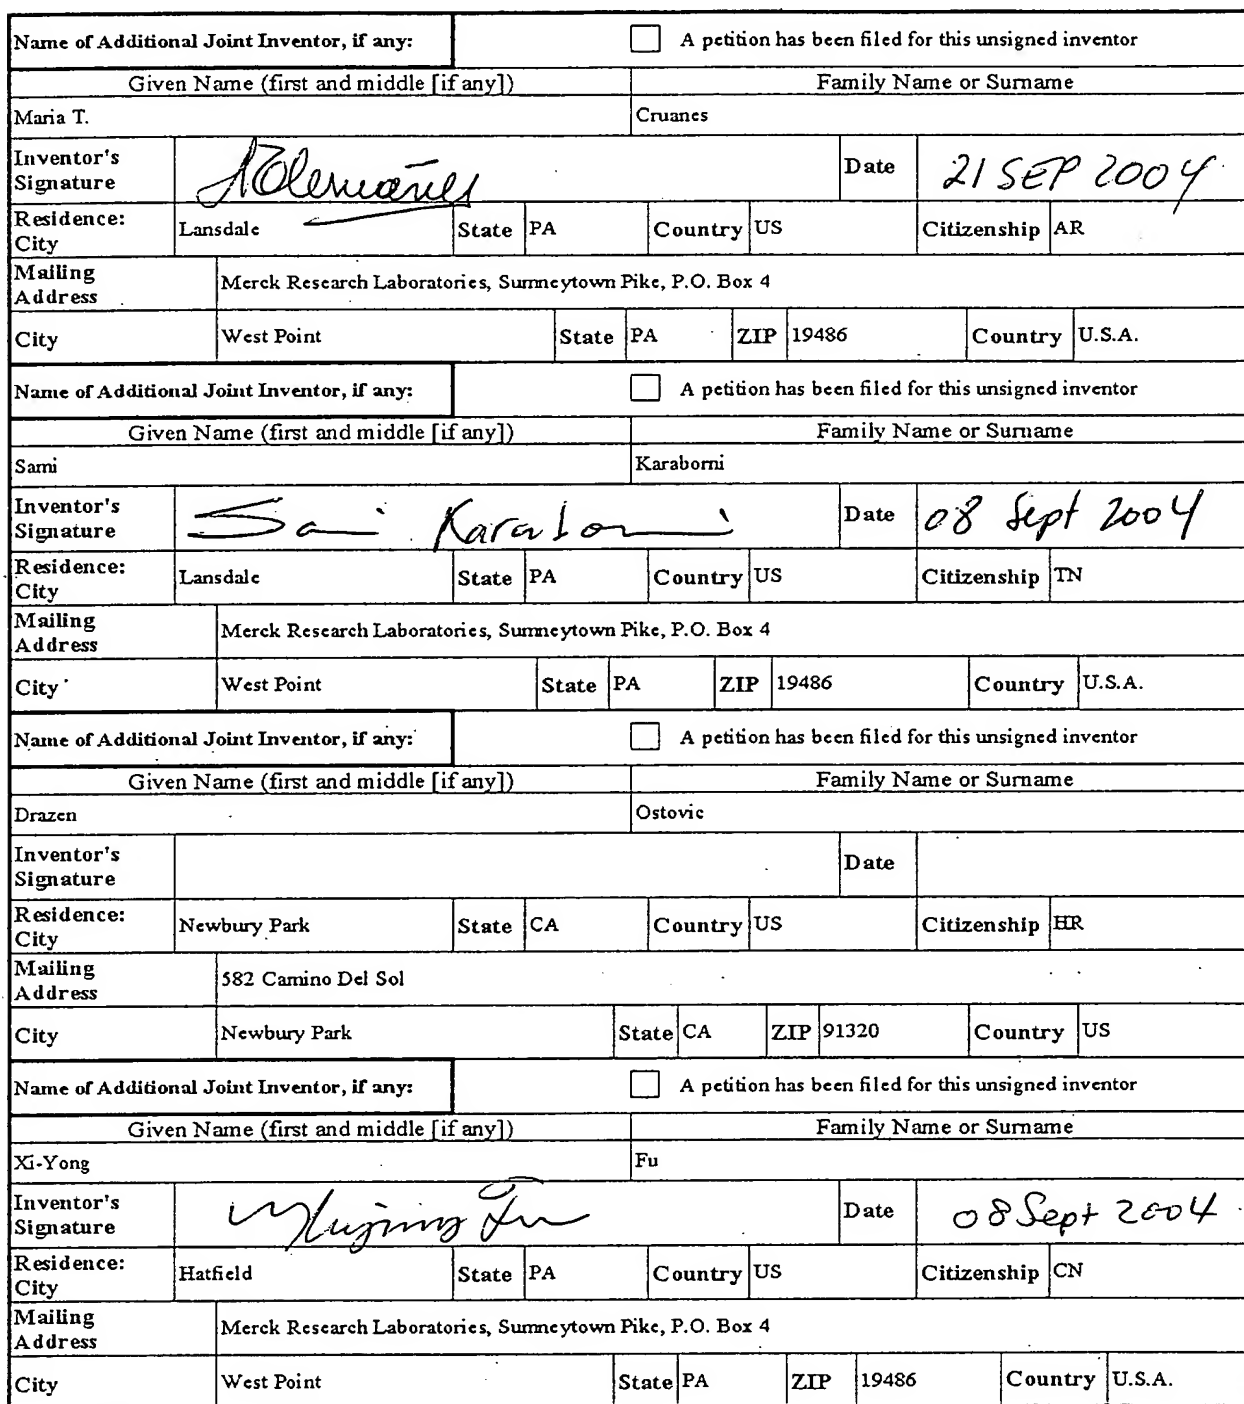 Name of Additional Joint Inventor, if any: A petition has been filed for this unsigned inventor
Given Name (first and middle [if any]) Family Name or Surname
Maria T. Cruanes
Inventor's Signature Date 21 SEP 2004
Residence: City Lansdale State PA Country US Citizenship AR
Mailing Address Merck Research Laboratories, Sumneytown Pike, P.O. Box 4
City West Point State PA ZIP 19486 Country U.S.A.
Name of Additional Joint Inventor, if any: A petition has been filed for this unsigned inventor
Given Name (first and middle [if any]) Family Name or Surname
Sami Karaborni
Inventor's Signature Sami Karaborni Date 08 Sept 2004
Residence: City Lansdale State PA Country US Citizenship TN
Mailing Address Merck Research Laboratories, Sumneytown Pike, P.O. Box 4
City West Point State PA ZIP 19486 Country U.S.A.
Name of Additional Joint Inventor, if any: A petition has been filed for this unsigned inventor
Given Name (first and middle [if any]) Family Name or Surname
Drazen Ostovic
Inventor's Signature Date
Residence: City Newbury Park State CA Country US Citizenship HR
Mailing Address 582 Camino Del Sol
City Newbury Park State CA ZIP 91320 Country US
Name of Additional Joint Inventor, if any: A petition has been filed for this unsigned inventor
Given Name (first and middle [if any]) Family Name or Surname
Xi-Yong Fu
Inventor's Signature Fu Date 08 Sept 2004
Residence: City Hatfield State PA Country US Citizenship CN
Mailing Address Merck Research Laboratories, Sumneytown Pike, P.O. Box 4
City West Point State PA ZIP 19486 Country U.S.A.